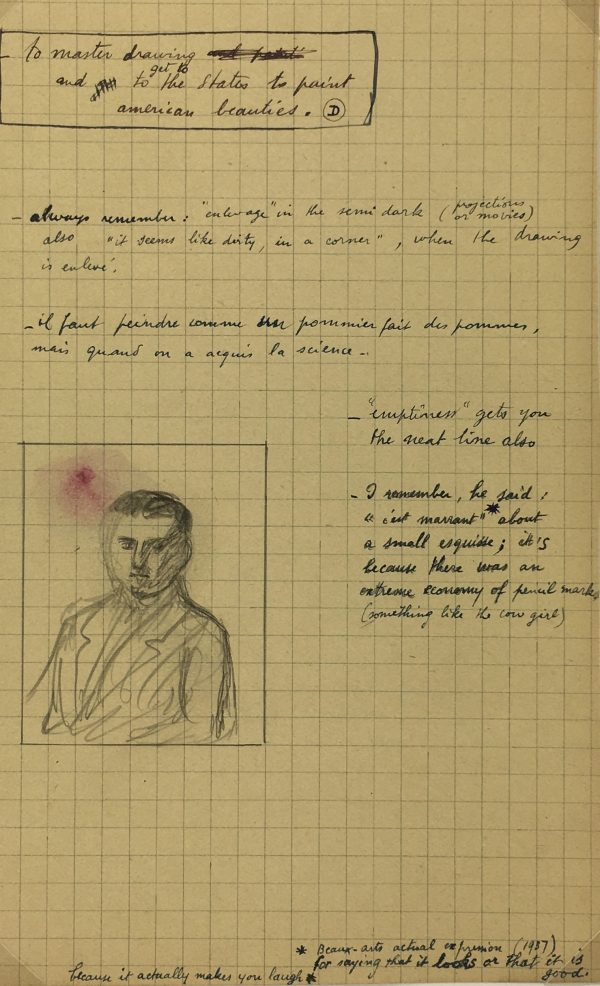 - to master drawing
get to
and to the States to paint
american beauties. D
- always remember: "enlevage" in the semi dark (projections
or movies)
also "it seems like dirty, in a corner", when the drawing
is enlevé.
- il faut peindre comme un pommier fait des pommes,
mais quand on a acquis la science -
- "emptiness" gets you
the neat line also
- I remember, he said:
"c'est marrant"* about
a small esquisse; it's
because there was an
extreme economy of pencil marks
(something like the cow girl)
* Beaux-arts actual expression (1937)
for saying that it looks or that it is
good.
because it actually makes you laugh *